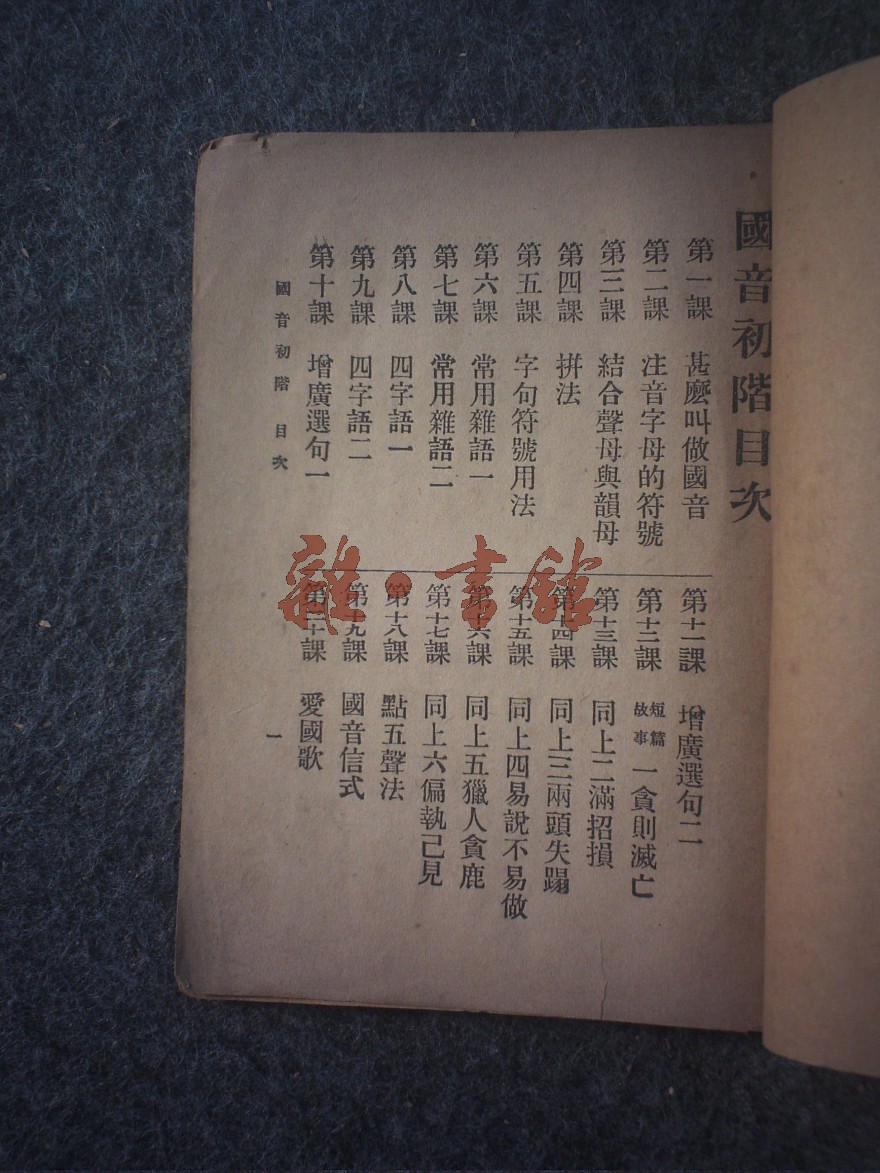 國音初階目次
第一課 甚麽叫做國音
第二課 注音字母的符號
第三課 結合聲母與韻母
第四課 拼法
第五課 字句符號用法
第六課 常用雜語一
第七課 常用雜語二
第八課 四字語一
第九課 四字語二
第十課 增廣選句一
第十一課 增廣選句二
第十二課 短篇故事 一貪則滅亡
第十三課 同上二滿招損
第十四課 同上三兩頭失蹋
第十五課 同上四易說不易做
第十六課 同上五獵人貪鹿
第十七課 同上六偏執己見
第十八課 點五聲法
第十九課 國音信式
第二十課 愛國歌
國音初階 目次
一
雜·書館